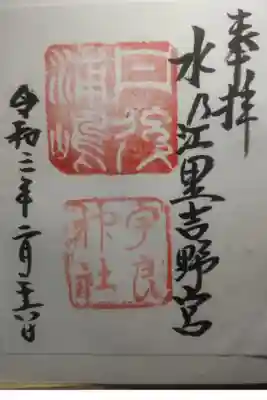 奉拝
水乃江里吉野宮
丹後
浦嶋
宇良
神社
令和二年二月